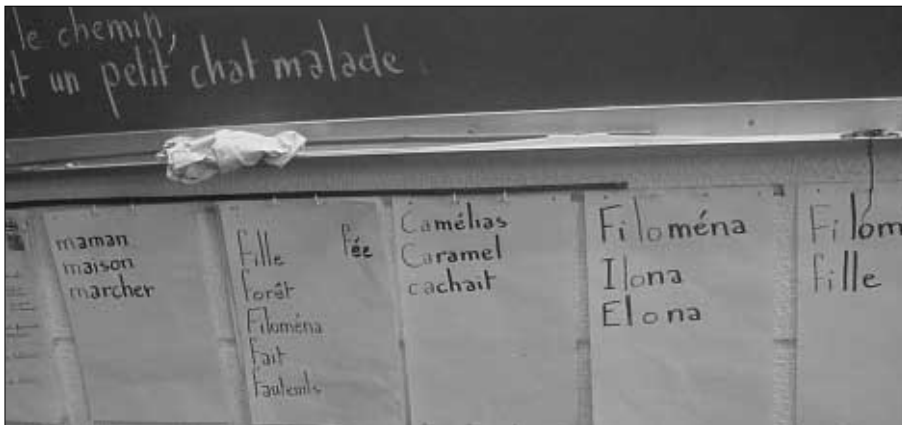 le chemin,
it un petit chat malade.
maman
maison
marcher
fille fée
forêt
Filoména
fait
fauteuils
Camélias
Caramel
cachait
Filoména
Ilona
Elona
Filom
fille